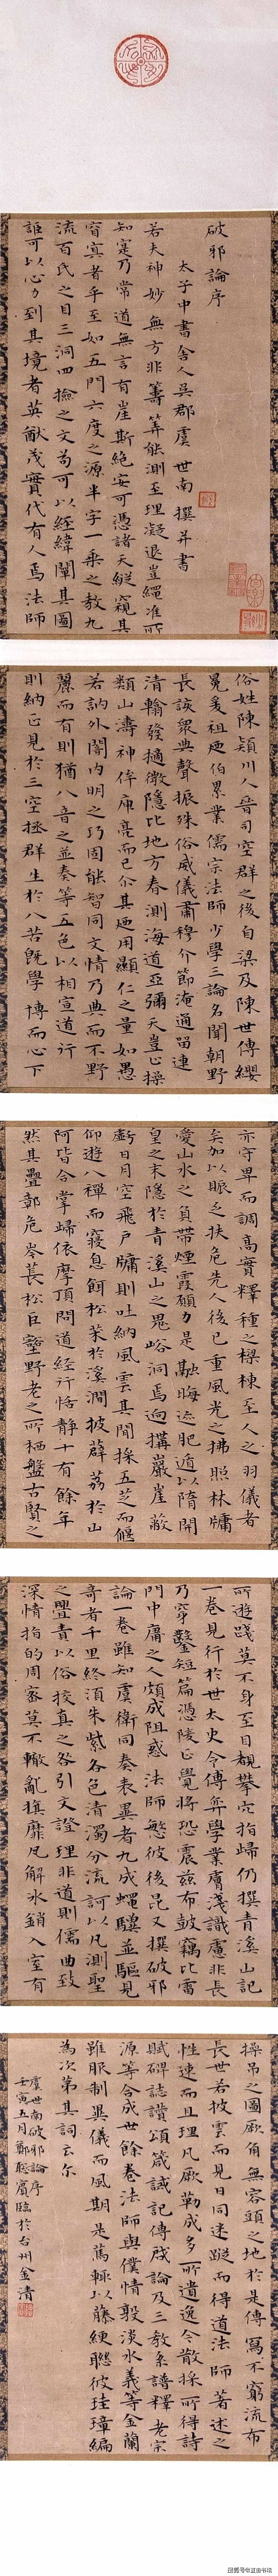 破邪論序
太子中書舍人吳郡虞世南撰并書
若夫神妙無方非籌筭能測至理凝退豈繩准所
知寔乃常道無言有崖斯絶安可憑諸天縱窺其
窅冥者乎至如五門六度之源半字一乘之教九
流百氏之目三洞四撿之文苟可以經緯闡其圖
詎可以心力到其境者英猷茂實代有人焉法師
俗姓陳潁川人晉司空群之後自梁及陳世傳纓
冕爰祖逮伯累業儒宗法師少學三論名聞朝野
長該衆典聲振殊俗威儀肅穆介節淹通留連
清翰發擿微隱比地方春測海道亞彌天豈止操
類山濤神侔庾亮而已尒其逕用顯仁之量如愚
若訥外闇內明之巧固能智同文情乃典而不野
麗而有則猶八音之並奏等五色以相宣道行
則納正見於三空拯群生於八苦旣學博而心下
亦守卑而調高實釋種之樑棟至人之羽儀者
矣加以賑乏扶危先人後已重風光之拂照林牖
愛山水之負帶煙霞願力是融晦迹肥遁以隋開
皇之末隱於青溪山之鬼峪洞焉迥搆巖崖蔽
虧日月空飛戶牖則吐納風雲其間採五芝而偃
仰遊八禪而寢息餌松茱於溪澗披薜荔於山
阿皆合掌歸依摩頂問道經行恬靜十有餘年
然其疊鄣危岑萇松巨壑野老之所栖盤古賢之
所遊踐莫不身至目覩攀穴指歸仍撰青溪山記
一卷見行於世太史令傅弈學業膚淺識慮非長
乃穿鑿短篇憑陵正覺將恐震茲布鼓竊比雷
門中庸之人頗成阻惑法師慜彼後昆又撰破邪
論一卷雖知虞衛同奏表異者九成蠅驥並驅見
奇者千里終須朱紫各色清濁分流訶以凡測聖
之舋責以俗挍真之咎引文證理非道則儒曲致
深情指的周密莫不轍亂旗靡瓦解冰銷入室有
操吊之圖厥角無容頭之地於是傳寫不窮流布
長世若披雲而見日同迷蹤而得道法師著述之
性速而且理凡厥勒成多所遺逸今散採所得詩
賦碑誌讚頌箴誡記傳啓論及三教系譜釋老宗
源等合成世餘卷法師與僕情敦淡水義等金蘭
雖服制異儀而風期是篤輒以藤緶聮彼珪璋編
為次第其詞云尒
虞世南破邪論序
壬寅五月鄭聰賓臨於台州金清